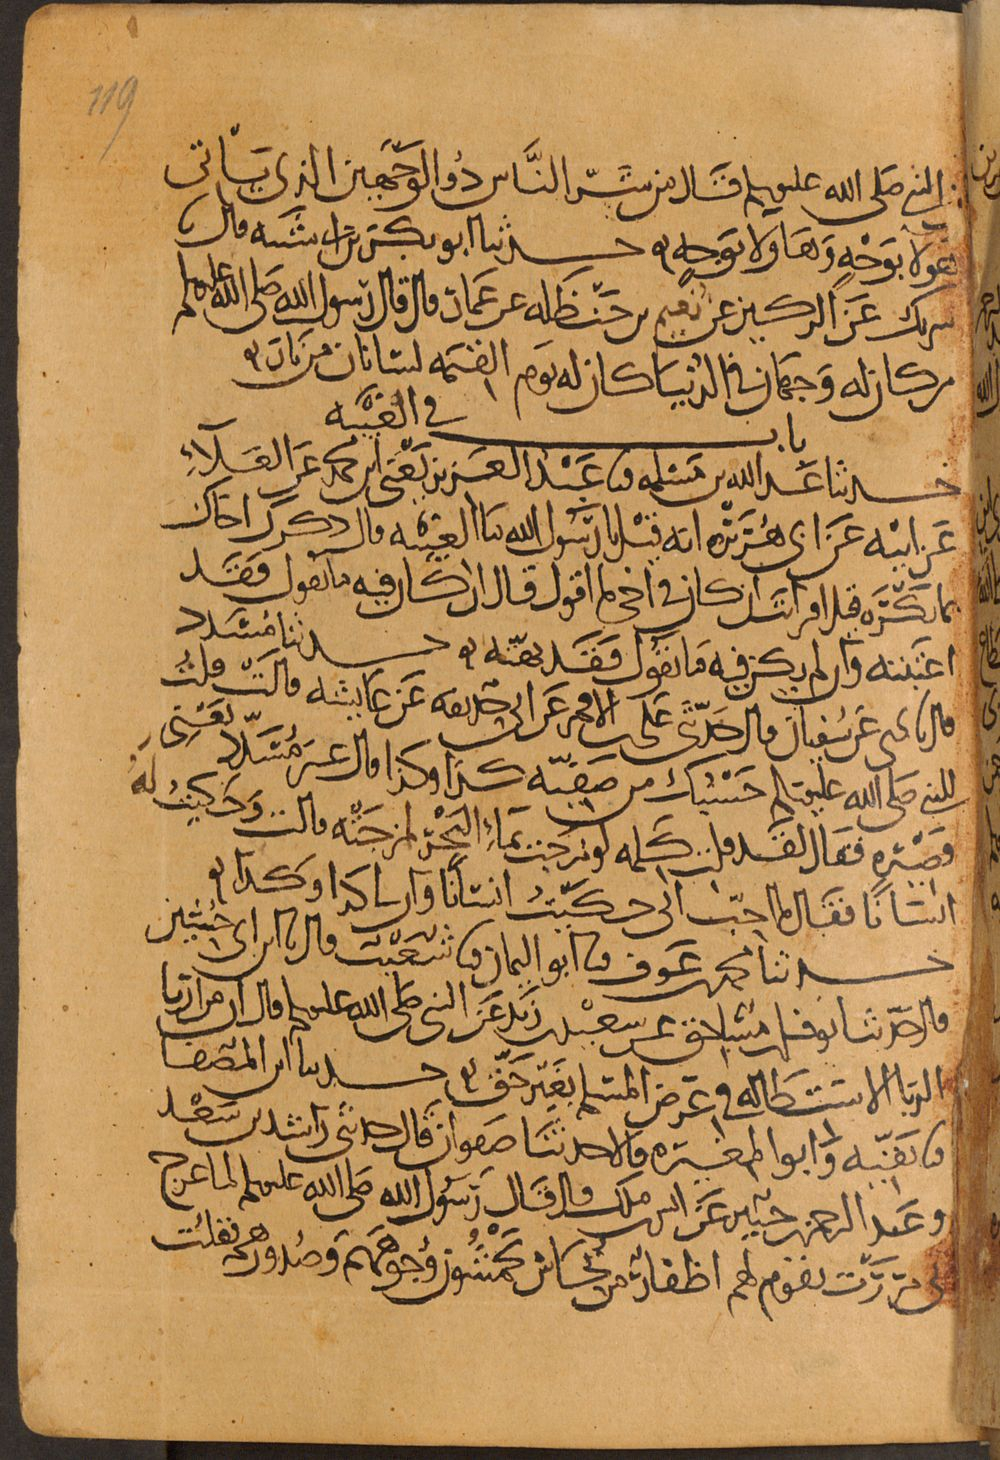 119
النبي صلى الله عليه وسلم قال من شر الناس ذو الوجهين الذي ياتي
هولا بوجه وهاولا بوجه حدثنا ابو بكر بن ابي شيبه قال
شريك عن الركين عن نعيم بن حنظله عن عمار قال قال رسول الله صلى الله عليه وسلم
من كان له وجهان في الدنيا كان له يوم القيمه لسانان من نار
باب في الغيبه
حدثنا عبد الله بن مسلمه نا عبد العزيز يعني ابن محمد عن العلاء
عن ابيه عن ابي هريره انه قيل يا رسول الله ما الغيبه قال ذكرك اخاك
بما يكره قيل افرايت ان كان في اخي ما اقول قال ان كان فيه ما تقول فقد
اغتبته وان لم يكن فيه ما تقول فقد بهته حدثنا مسدد
قال نا يحيى عن سفيان قال حدثني علي بن الاقمر عن ابي حذيفه عن عايشه قالت قلت
للنبي صلى الله عليه وسلم حسبك من صفيه كذا وكذا قال غير مسدد تعني
قصيره فقال لقد قلت كلمه لو مزجت بماء البحر لمزجته قالت وحكيت له
انسانا فقال ما احب اني حكيت انسانا وان لي كذا وكذا
حدثنا محمد بن عوف نا ابو اليمان نا شعيب قال نا ابن ابي حسين
قال حدثنا نوفل بن مساحق عن سعيد بن زيد عن النبي صلى الله عليه وسلم قال ان من اربا
الربا الاستطاله في عرض المسلم بغير حق حدثنا ابن المصفا
نا بقيه وابو المغيره قالا حدثنا صفوان قال حدثني راشد بن سعد
وعبد الرحمن بن جبير عن انس بن ملك قال قال رسول الله صلى الله عليه وسلم لما عرج
بي مررت بقوم لهم اظفار من نحاس يخمشون وجوههم وصدورهم فقلت